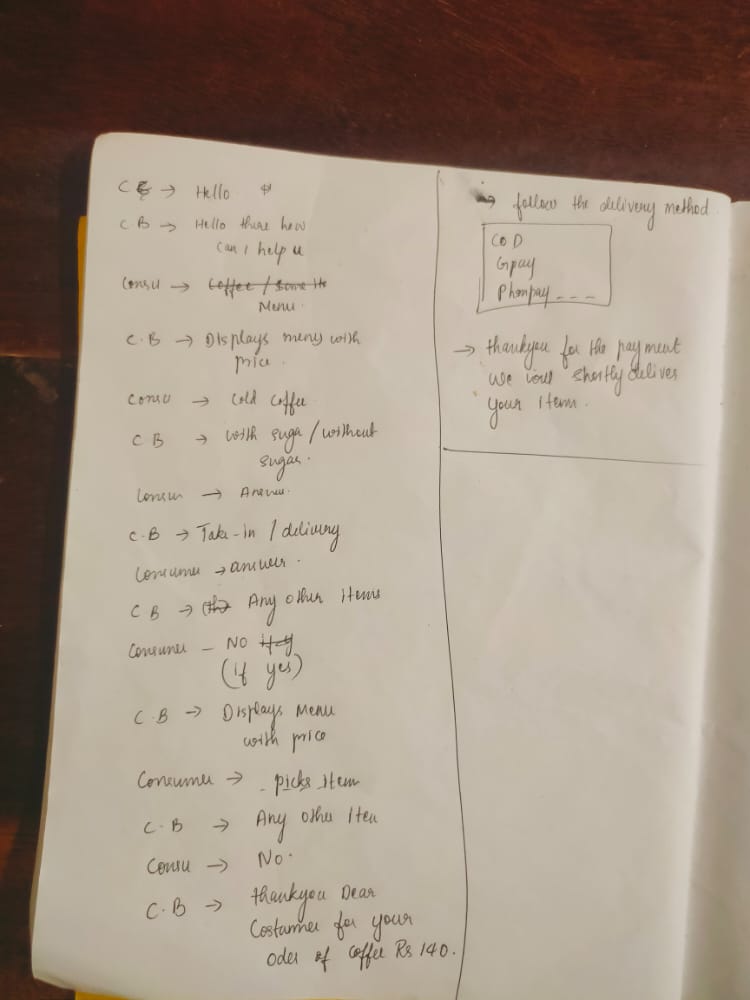 C → Hello
C B → Hello there how
can I help u
Consu → Coffee / Some Ite
Menu.
C.B → Displays menu with
price.
Consu → Cold Coffee
C B → with suga / without
sugar.
Consu → Answer.
C.B → Take-in / delivery
Consumer → answer.
C B → Any other Items
Consumer – No
(if yes)
C.B → Displays Menu
with price
Consumer → - picks Item
C.B → Any other Item
Consu → No.
C.B → thankyou Dear
Costumer for your
oder of coffee Rs 140.
→ follow the delivery method.
COD
Gpay
Phonpay _ _ _
→ thankyou for the payment
we will shortly deliver
your Item.